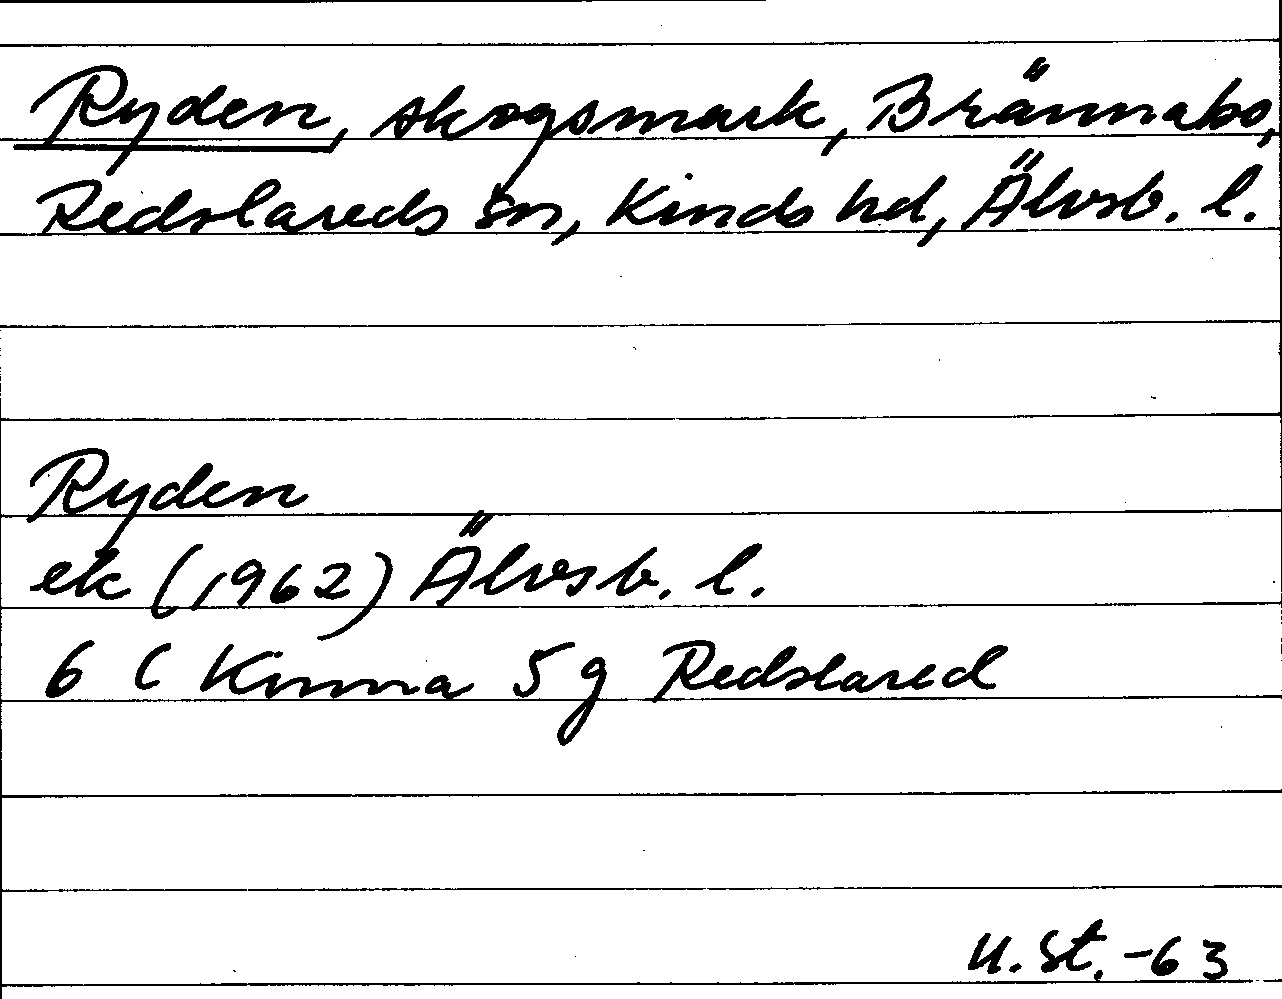 Ryden, skogsmark, Brännabo,
Redslareds sn, Kinds hd, Älvsb. l.
Ryden
ek (1962) Älvsb. l.
6 C Kinna 5 g Redslared
U. St. -63